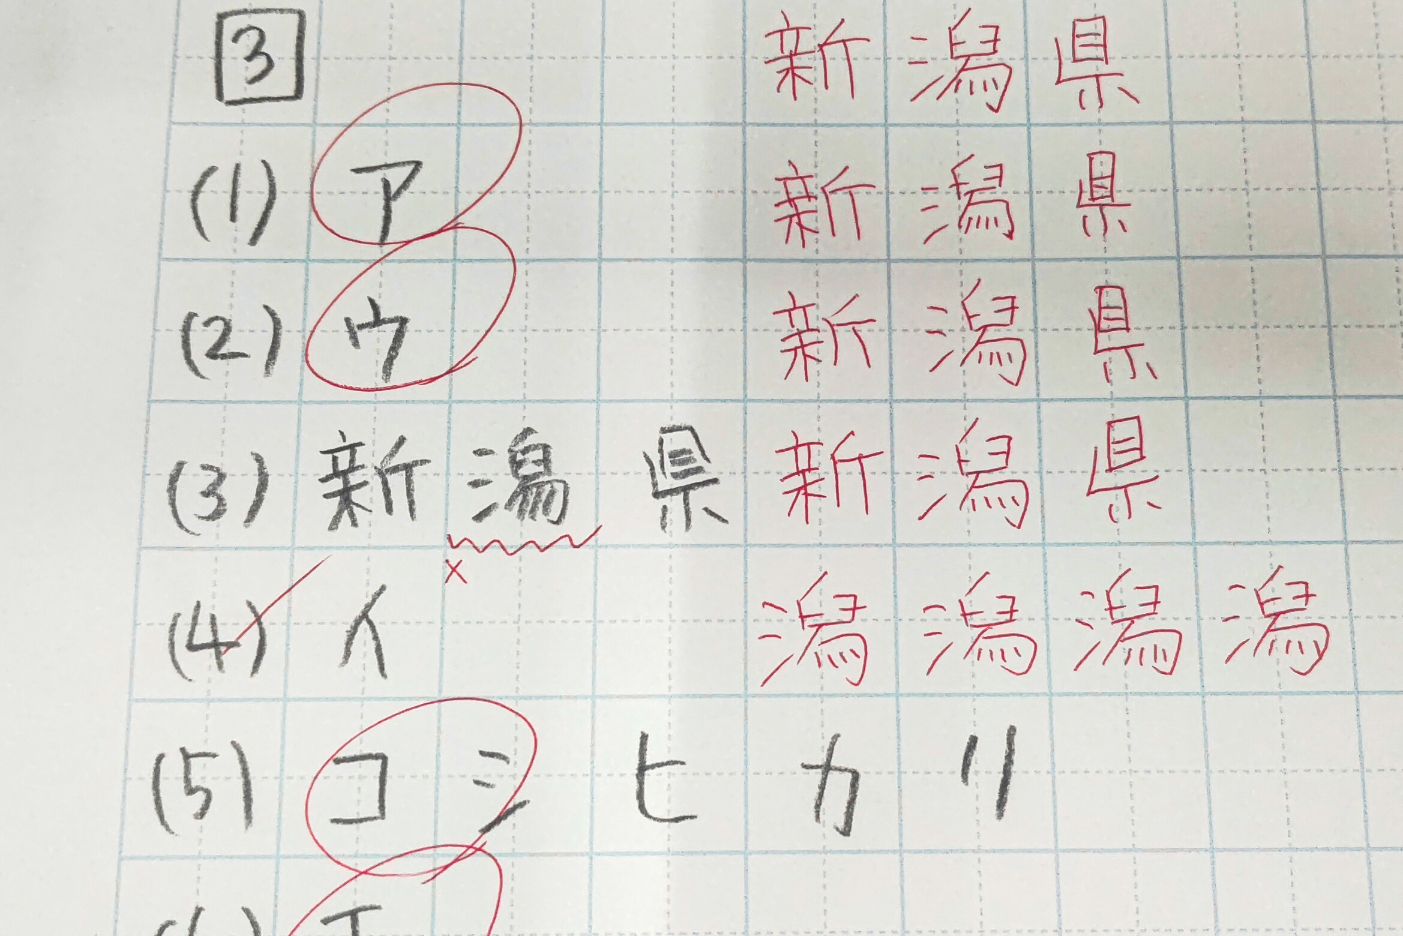 3 新潟県
(1) ア 新潟県
(2) ウ 新潟県
(3) 新潟県 新潟県
x
(4) イ 潟潟潟潟
(5) コシヒカリ